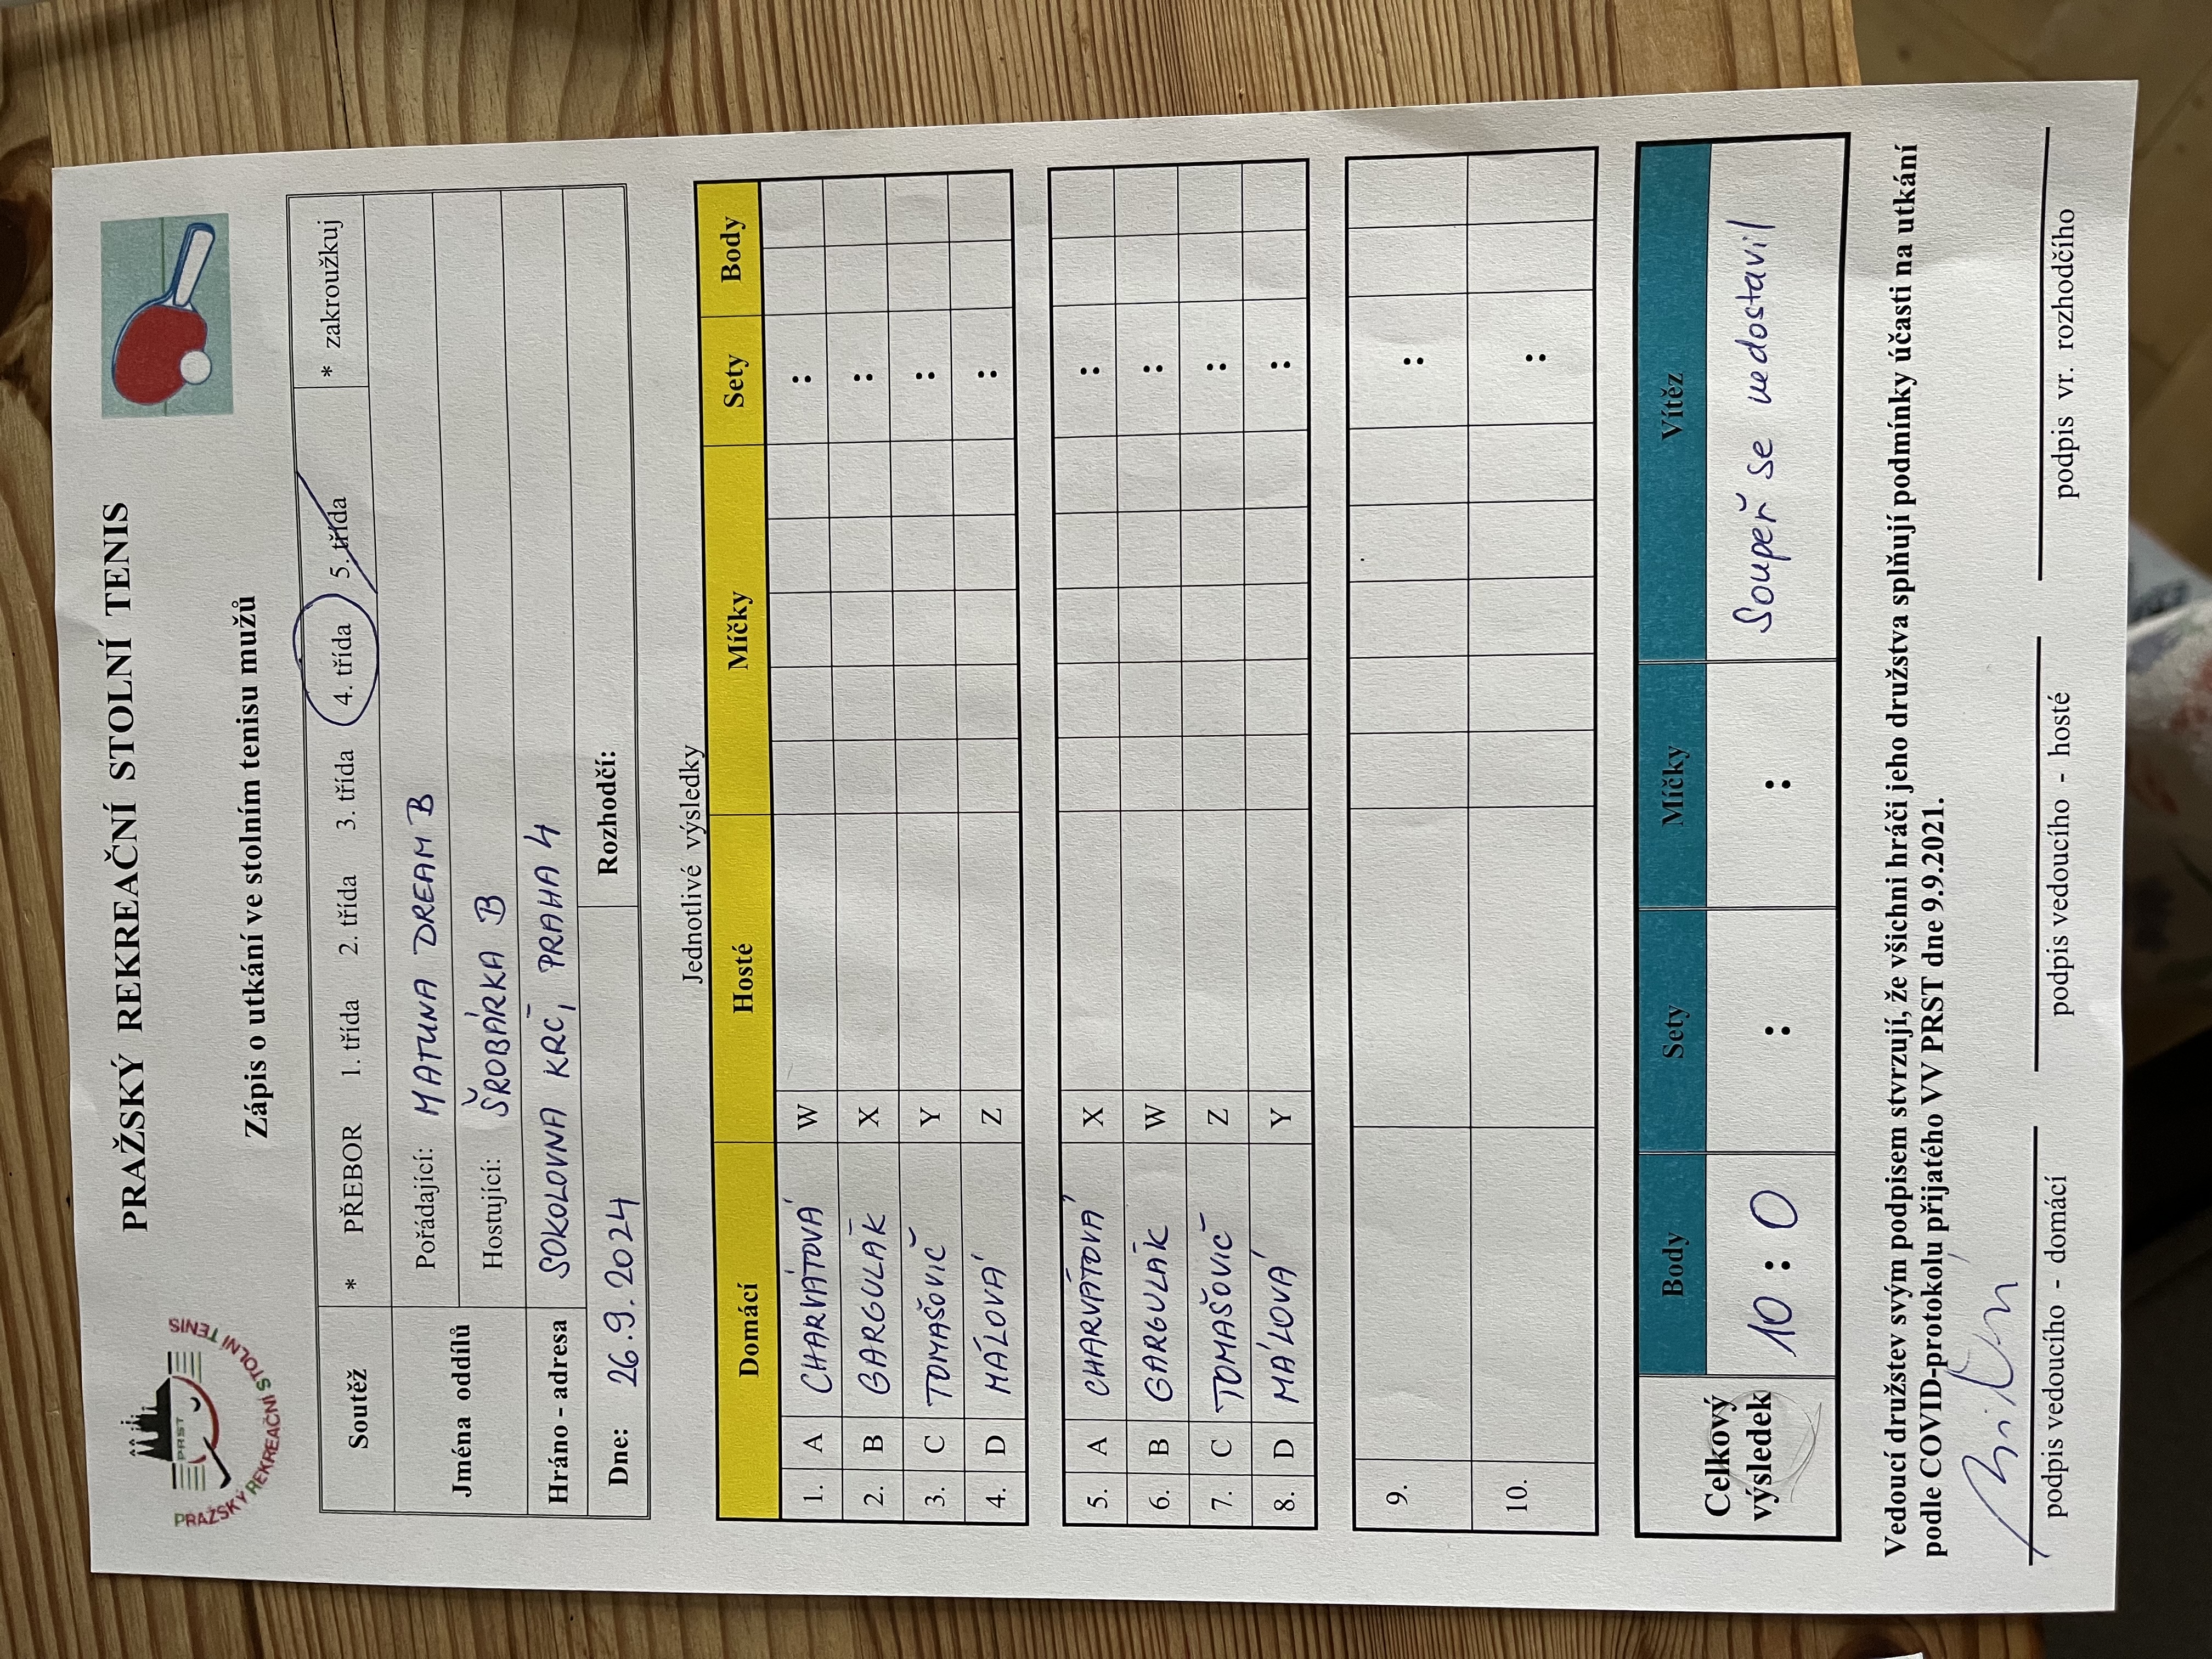 PRAŽSKÝ REKREAČNÍ STOLNÍ TENIS
PRST
PRAŽSKÝ REKREAČNÍ STOLNÍ TENIS
Zápis o utkání ve stolním tenisu mužů
Soutěž * PŘEBOR 1. třída 2. třída 3. třída 4. třída 5. třída * zakroužkuj
Jména oddílů
Pořádající: MATUNA DREAM B
Hostující: ŠROBÁRKA B
Hráno - adresa SOKOLOVNA KRČ, PRAHA 4
Dne: 26.9.2024 Rozhodčí:
Jednotlivé výsledky
Domácí Hosté Míčky Sety Body
1. A CHARVÁTOVÁ W :
2. B GARGULÁK X :
3. C TOMAŠOVIČ Y :
4. D MÁLOVÁ Z :
5. A CHARVÁTOVÁ X :
6. B GARGULÁK W :
7. C TOMAŠOVIČ Z :
8. D MÁLOVÁ Y :
9. :
10. :
Celkový výsledek Body Sety Míčky Vítěz
10 : 0 : : Soupeř se nedostavil
Vedoucí družstev svým podpisem stvrzují, že všichni hráči jeho družstva splňují podmínky účasti na utkání
podle COVID-protokolu přijatého VV PRST dne 9.9.2021.
podpis vedoucího - domácí podpis vedoucího - hosté podpis vr. rozhodčího